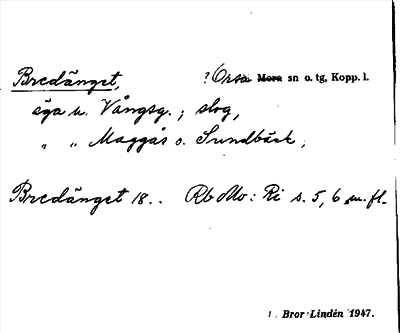 Bredänget, ? Orsa Mora sn o. tg, Kopp. l.
äga u. Vångsg.; slog,
" " Maggås o. Sundbäck;
Bredänget 18.. Rb Mo: Ri s. 5, 6 m. fl.
Bror Lindén 1947.